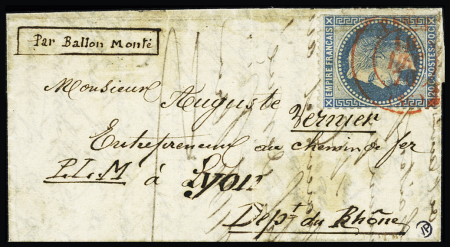 Par Ballon Monté
EMPIRE FRANÇAIS
20 C POSTES 20 C
Monsieur Auguste
Vernier
Entrepreneur du chemin de fer
P.L.M à Lyon
Dépt du Rhône